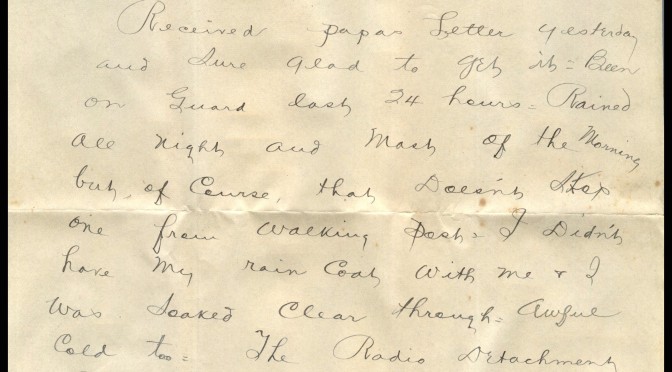 Received papas Letter yesterday
and Sure glad to get it = Been
on Guard last 24 hours = Rained
all night and Most of the Morning
but, of Course, that Doesn't Stop
one from walking Post = I Didn't
have My rain Coat With me & I
was Soaked Clear through = Awful
Cold too = The Radio Detachment